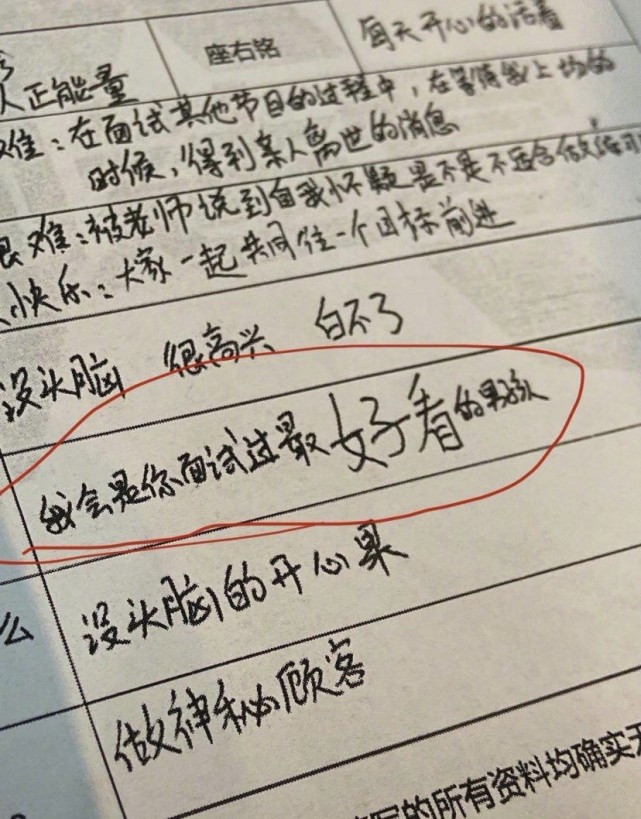 人正能量 座右铭 每天开心的活着
难：在面试其他节目的过程中，在等待我上场的
时候，得到亲人离世的消息
难：被老师说到自我怀疑是不是不适合做
快乐：大家一起共同往一个目标前进
没头脑 很高兴 白不了
我会是你面试过最好看的男孩
么 没头脑的开心果
做神秘顾客
的所有资料均确实无